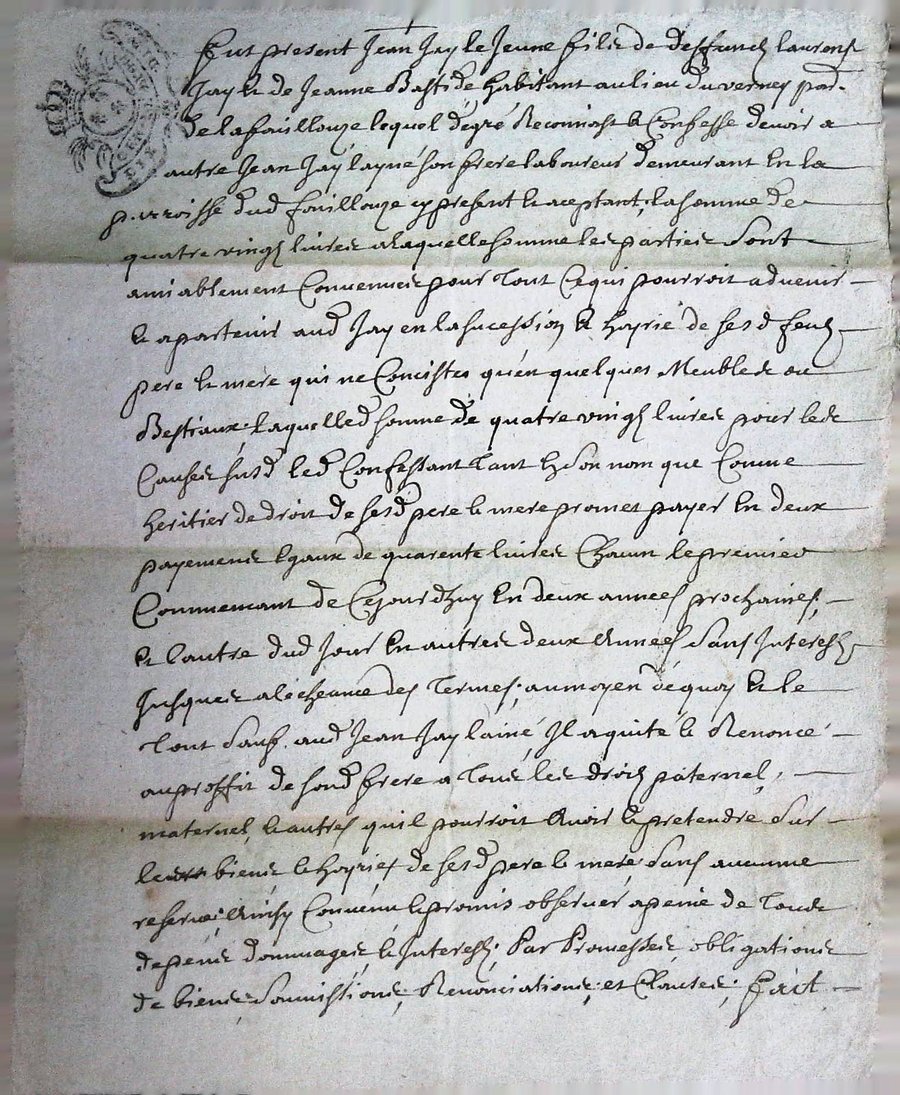 Fut present Jean Jay le Jeune fils de deffunct laurens
Jay et de Jeanne Bastide habitant au lieu du verney par.
de la fouillouze lequel de gré Reconnoist et Confesse devoir a
autre Jean Jay layné son frere laboureur demeurant en la
parroisse dud fouillouze cy present et aceptant, la somme de
quatre vingt livres a laquelle somme les parties sont
amiablement Convenues pour tout Ce qui pourroit advenir
et apartenir aud Jay en la sucession et hoyrie de sesd feuz
pere et mere qui ne Concistes qu'en quelques Meubles ou
Bestiaux; laquelled somme de quatre vingt livres pour les
Causes susd led Confessant tant en son nom que Comme
heritier de droit de sesd pere et mere promet payer en deux
payemens egaux de quarente livres Chacun le premier
Commencant de Cejourdhuy en deux annees prochaines,
et l'autre dud Jour en autres deux annees sans Interestz
Jusques a lecheance des termes; au moyen de quoy et le
tout sauf. aud Jean Jay lainé, Il a quité et Renoncé
au proffit de sond frere a tous les droitz paternel,
maternel, et autres qu'il pourroit avoir et pretendre sur
les biens et hoyries de sesd pere et mere, sans aucune
reserve; Ainsy Convenu et promis observer a peine de tous
depens dommages, et Interestz; Par Promesses, obligations
de biens, soumissions, Renonciations, et Clauses; fait